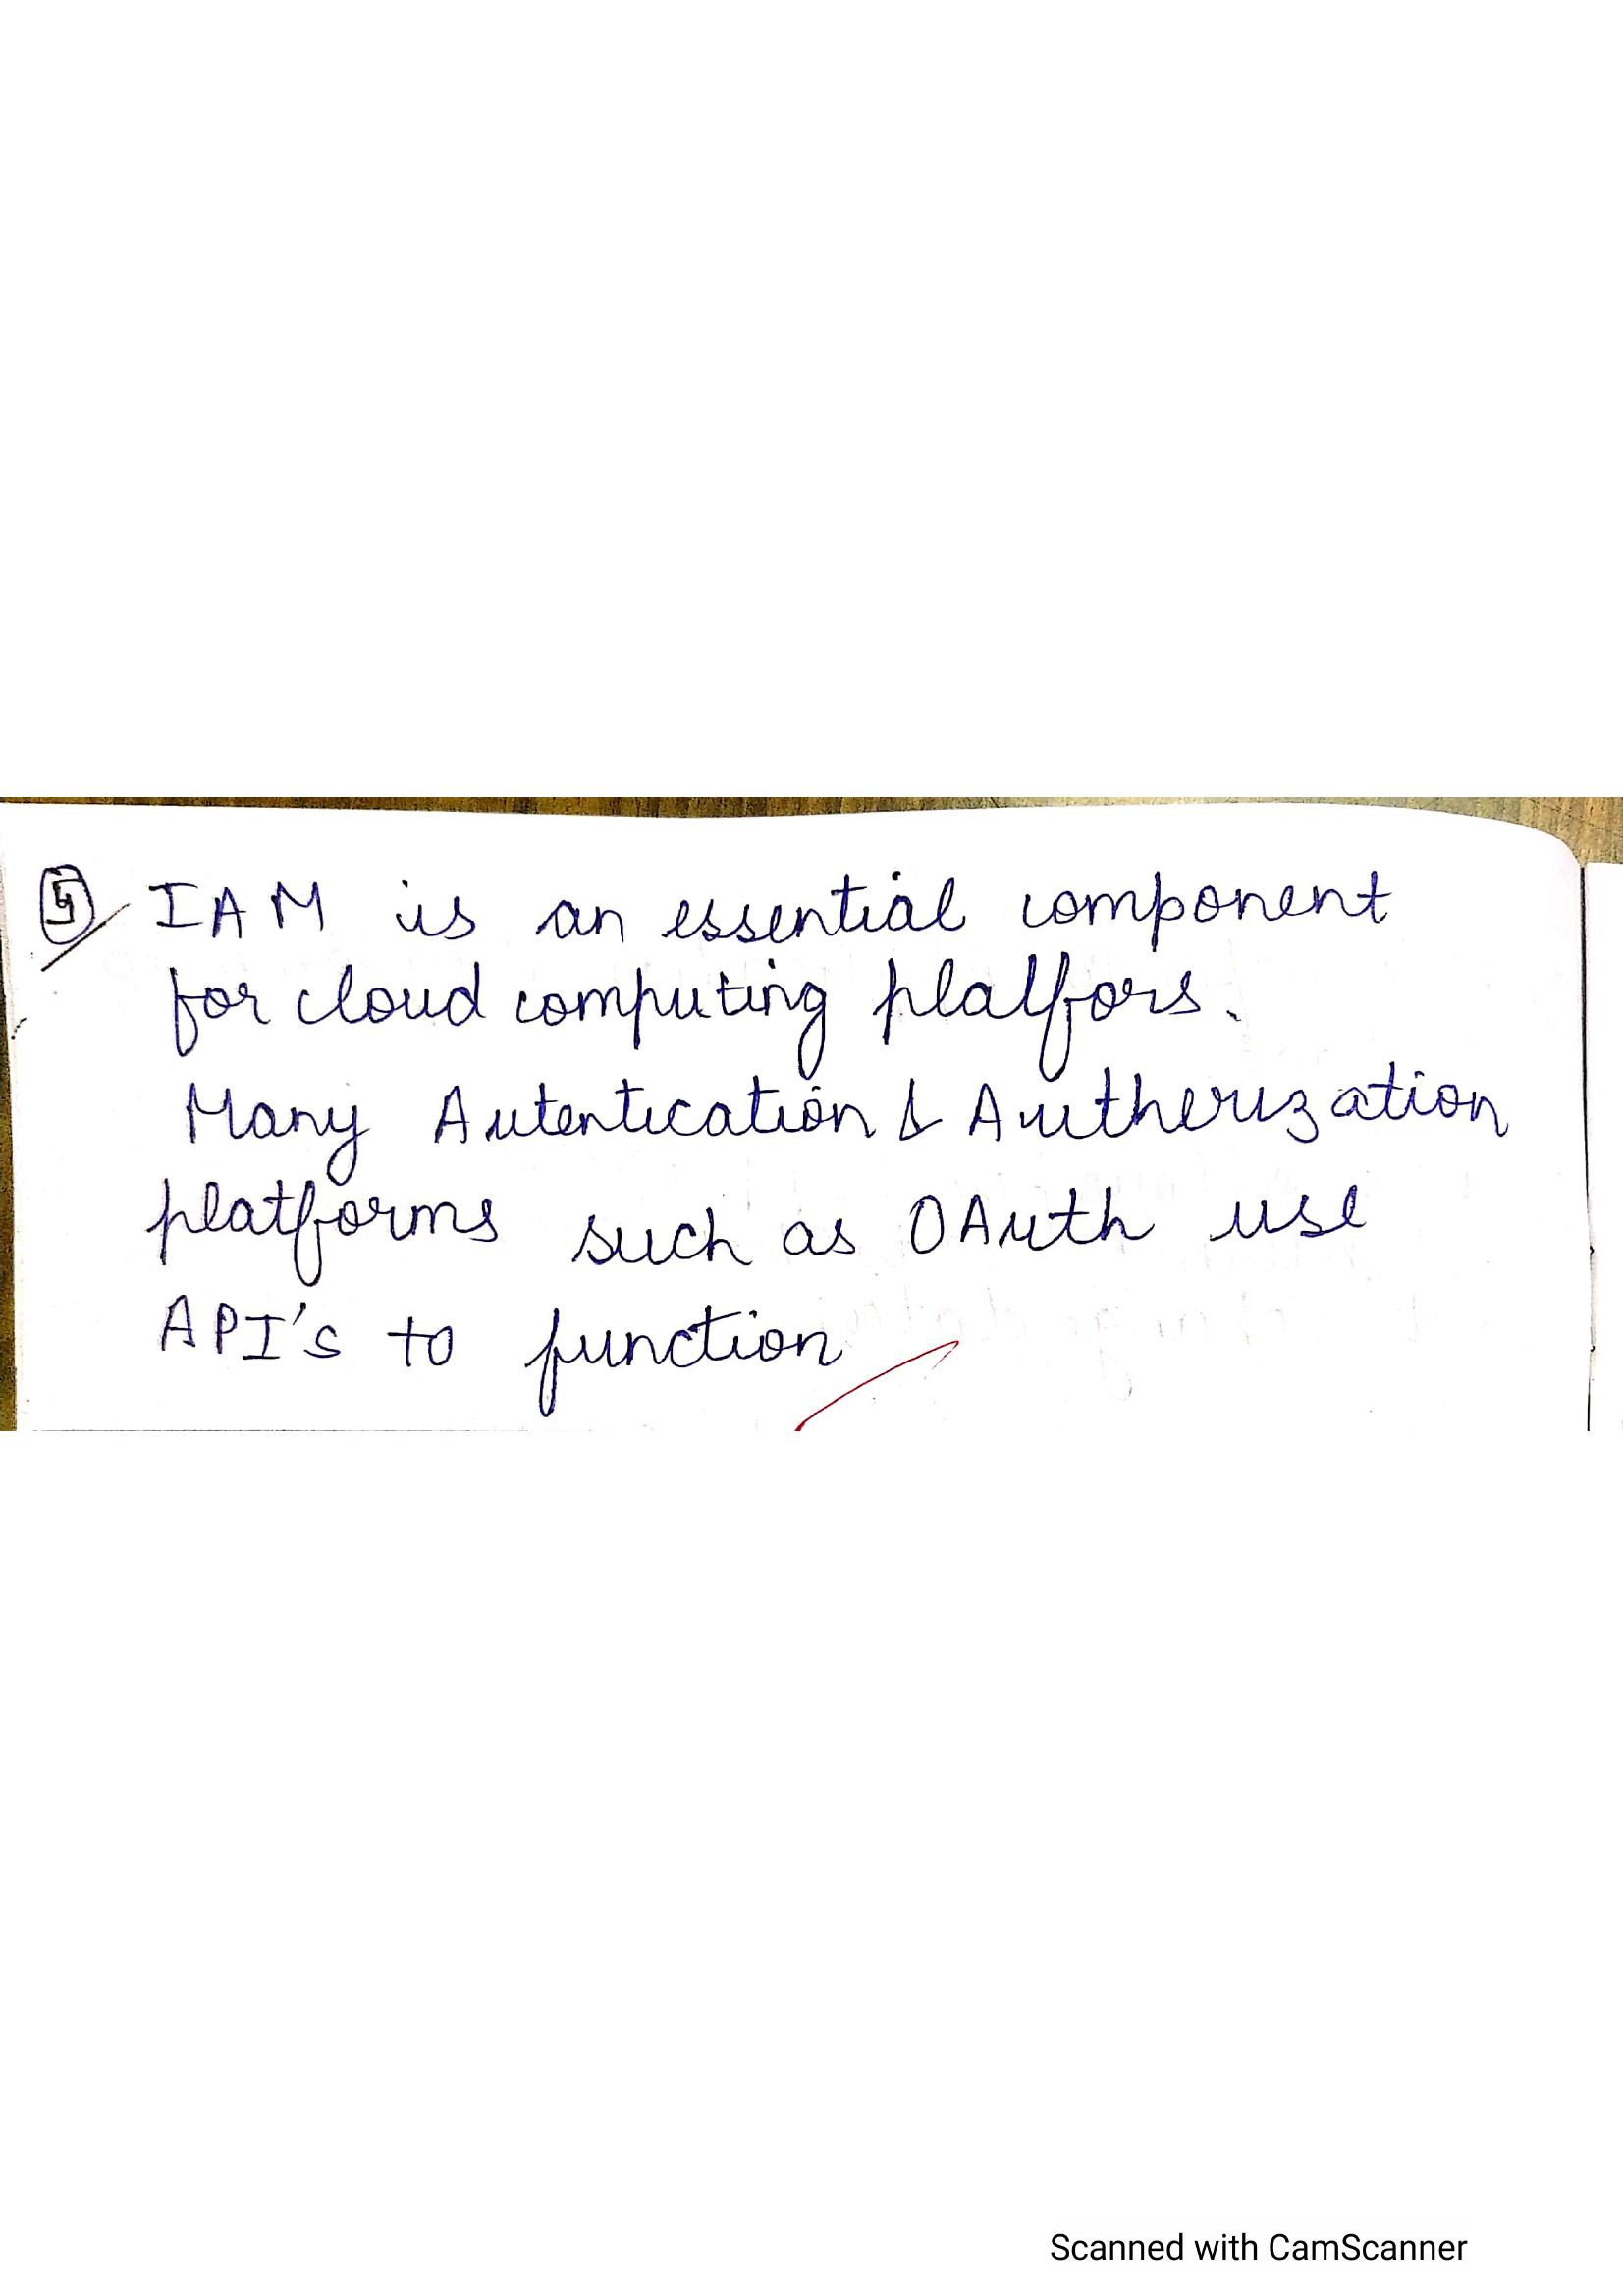 5 IAM is an essential component
for cloud computing platfors.
Many Autentication & Autherization
platforms such as OAuth use
API's to function
Scanned with CamScanner